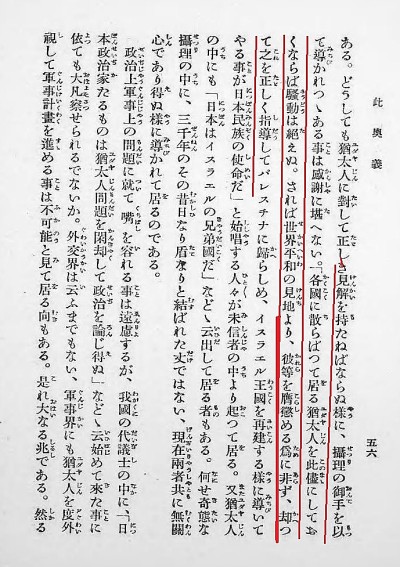 此奧義
五六
ある。どうしても猶太人に對して正しき見解を持たねばならぬ樣に、攝理の御手を以
て導かれつゝある事は感謝に堪へない。「各國に散らばつて居る猶太人を此儘にしてお
ならば騷動は絶えぬ。されば世界平和の見地より、彼等を膺懲める爲に非ず、却つ
て之を正しく指導してパレスチナに歸らしめ、イスラエル王國を再建する樣に導いて
やる事が日本民族の使命だ」と始唱する人々が未信者の中より起つて居る。又猶太人
の中にも「日本はイスラエルの兄弟國だ」などゝ云出して居る者もある。何せ奇態な
攝理の中に、三千年のその昔日なり盾なりと結ばれた丈ではない、現在兩者共に無關
心であり得ぬ樣に導かれて居るのである。
政治上軍事上の問題に就て、嘴を容れる事は遠慮するが、我國の代議士の中に「日
本政治家たるものは猶太人問題を閑却して政治を論じ得ぬ」などゝ云始めて來た事に
依ても大凡察せられるでないか。外交界は云ふまでもない、軍事界にも猶太人を度外
視して軍事計畫を進める事は不可能と見て居る向もある。是れ大なる兆である。然る